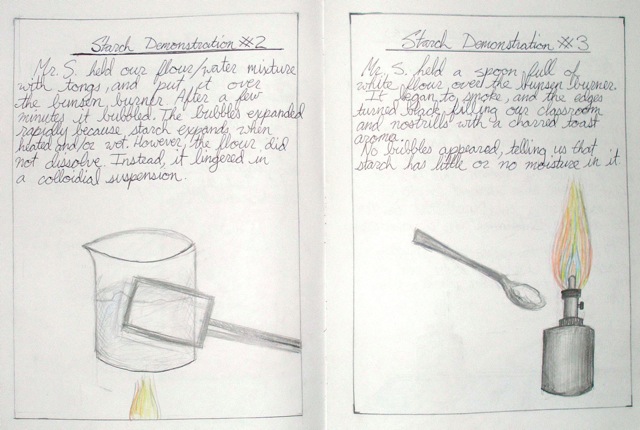 Starch Demonstration #2
Mr. S. held our flour/water mixture
with tongs, and put it over
the bunsen burner. After a few
minutes it bubbled. The bubbles expanded
rapidly because starch expands when
heated and/or wet. However, the flour did
not dissolve. Instead, it lingered in
a colloidial suspension.
Starch Demonstration #3
Mr. S. held a spoon full of
white flour over the bunsen burner.
It began to smoke, and the edges
turned black, filling our classroom
and nostrills with a charred toast
aroma.
No bubbles appeared, telling us that
starch has little or no moisture in it.